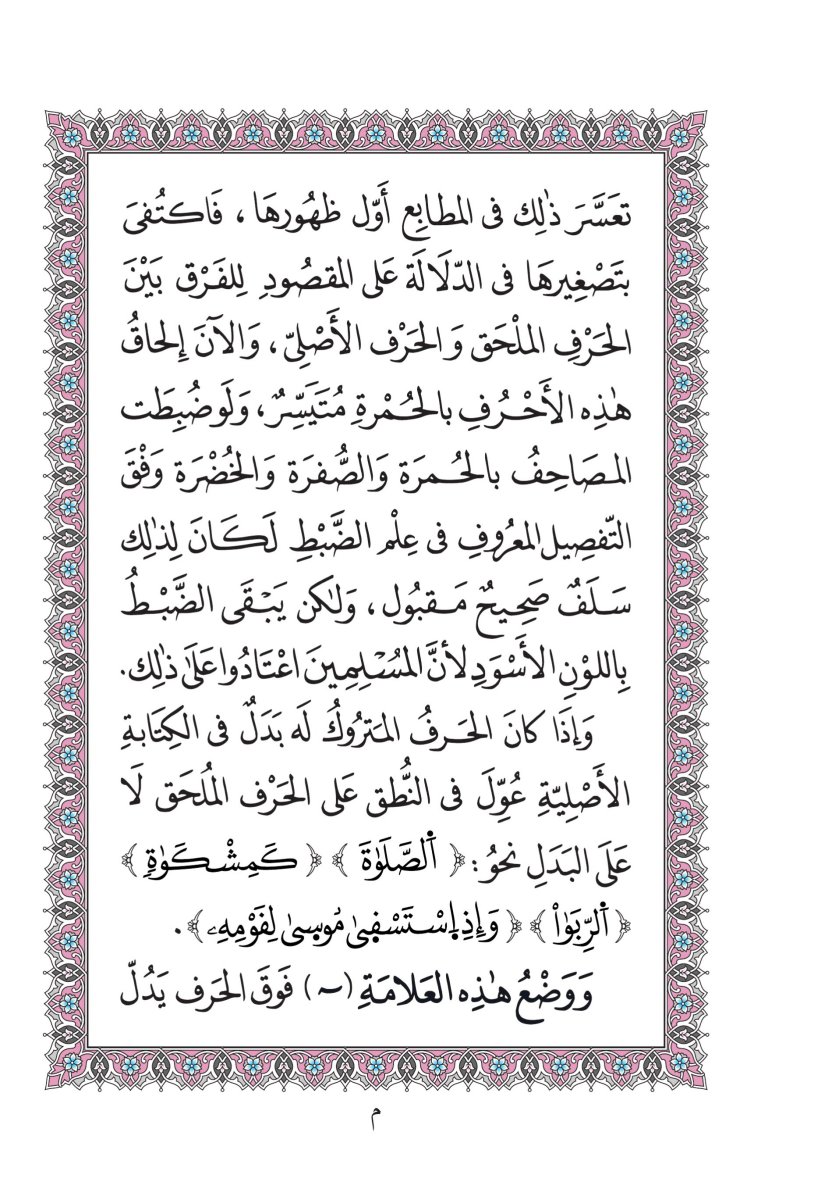 تعَسَّرَ ذٰلِك فى المطابِع أَوّل ظهُورهَا ، فَاكتُفىَ
بتَصْغِيرهَا فى الدّلَالَة عَلى المقصُودِ لِلفَرْق بَيْنَ
الحَرْفِ الملْحَق وَالحَرْف الأَصْلِىّ ، وَالآنَ إلحاقُ
هٰذِه الأَحْرُفِ بالحُمْرةِ مُتَيَسِّرٌ ، وَلَو ضُبِطَت
المصَاحِفُ بالحُمرَة وَالصُّفرَة وَالخُضْرَة وَفْقَ
التّفصِيل المعرُوفِ فى عِلْم الضَّبْطِ لَكَانَ لِذٰلِك
سَلَفٌ صَحِيحٌ مَقبُول ، وَلٰكن يَبْقَى الضَّبْطُ
بِاللوْنِ الأَسْوَدِ لأنَّ المُسْلِمِينَ اعْتَادُوا عَلَىٰ ذٰلِك.
وَإذَا كانَ الحَرفُ المترُوكُ لَه بَدَلٌ فى الكِتَابةِ
الأَصْلِيّةِ عُوِّلَ فى النُّطق عَلى الحَرْف المُلحَق لَا
عَلَى البَدَلِ نحوُ : ﴿ اَ۬لصَّلَوٰةَ ﴾ ﴿ كَمِشْكَوٰةٖ ﴾
﴿ اَ۬لرِّبَوٰاْ ﴾ ﴿ وَإِذِ اِ۪سْتَسْقٜىٰ مُوسٜىٰ لِقَوْمِهِۦ ﴾ .
وَوَضْعُ هٰذِه العَلامَةِ (~) فَوقَ الحَرف يَدُلّ
م